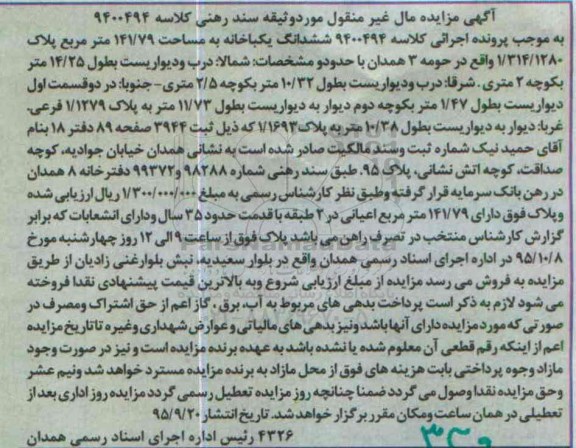 آگهی مزایده مال غیر منقول موردوثیقه سند رهنی کلاسه ۹۴۰۰۴۹۴
به موجب پرونده اجرائی کلاسه ۹۴۰۰۴۹۴ ششدانگ یکبابخانه به مساحت ۱۴۱/۷۹ متر مربع پلاک
۱/۳۱۴/۱۲۸۰ واقع در حومه ۳ همدان با حدودو مشخصات: شمالا: درب ودیواریست بطول ۱۴/۲۵ متر
بکوچه ۲ متری . شرقا: درب ودیواریست بطول ۱۰/۳۲ متر بکوچه ۲/۵ متری - جنوبا: در دوقسمت اول
دیواریست بطول ۱/۴۷ متر بکوچه دوم دیوار به دیواریست بطول ۱۱/۷۳ متر به پلاک ۱/۱۲۷۹ فرعی.
غربا: دیوار به دیواریست بطول ۱۰/۳۸ متر به پلاک ۱/۱۶۹۳ که ذیل ثبت ۳۹۴۴ صفحه ۸۹ دفتر ۱۸ بنام
آقای حمید نیک شماره ثبت وسند مالکیت صادر شده است به نشانی همدان خیابان جوادیه، کوچه
صداقت، کوچه اتش نشانی، پلاک ۹۵. طبق سند رهنی شماره ۹۸۲۸۸ و ۹۹۳۷۲ دفترخانه ۸ همدان
در رهن بانک سرمایه قرار گرفته وطبق نظر کارشناس رسمی به مبلغ ۱/۳۰۰/۰۰۰/۰۰۰ ریال ارزیابی شده
وپلاک فوق دارای ۱۴۱/۷۹ متر مربع اعیانی در ۲ طبقه با قدمت حدود ۳۵ سال ودارای انشعابات که برابر
گزارش کارشناس منتخب در تصرف راهن می باشد. پلاک فوق از ساعت ۹ الی ۱۲ روز چهارشنبه مورخ
۹۵/۱۰/۸ در اداره اجرای اسناد رسمی همدان واقع در بلوار سعیدیه، نبش بلوارغنی زادیان از طریق
مزایده به فروش می رسد مزایده از مبلغ ارزیابی شروع وبه بالاترین قیمت پیشنهادی نقدا فروخته
می شود لازم به ذکر است پرداخت بدهی های مربوط به آب، برق ، گاز اعم از حق اشتراک ومصرف در
صورتی که مورد مزایده دارای آنها باشد ونیز بدهی های مالیاتی و عوارض شهداری وغیره تا تاریخ مزایده
اعم از اینکه رقم قطعی آن معلوم شده یا نشده باشد به عهده برنده مزایده است و نیز در صورت وجود
مازاد وجوه پرداختی بابت هزینه های فوق از محل مازاد به برنده مزایده مسترد خواهد شد ونیم عشر
وحق مزایده نقدا وصول می گردد ضمنا چنانچه روز مزایده تعطیل رسمی گردد مزایده روز اداری بعد از
تعطیلی در همان ساعت ومکان مقرر برگزار خواهد شد. تاریخ انتشار ۹۵/۹/۲۰
۴۳۲۶ رئیس اداره اجرای اسناد رسمی همدان